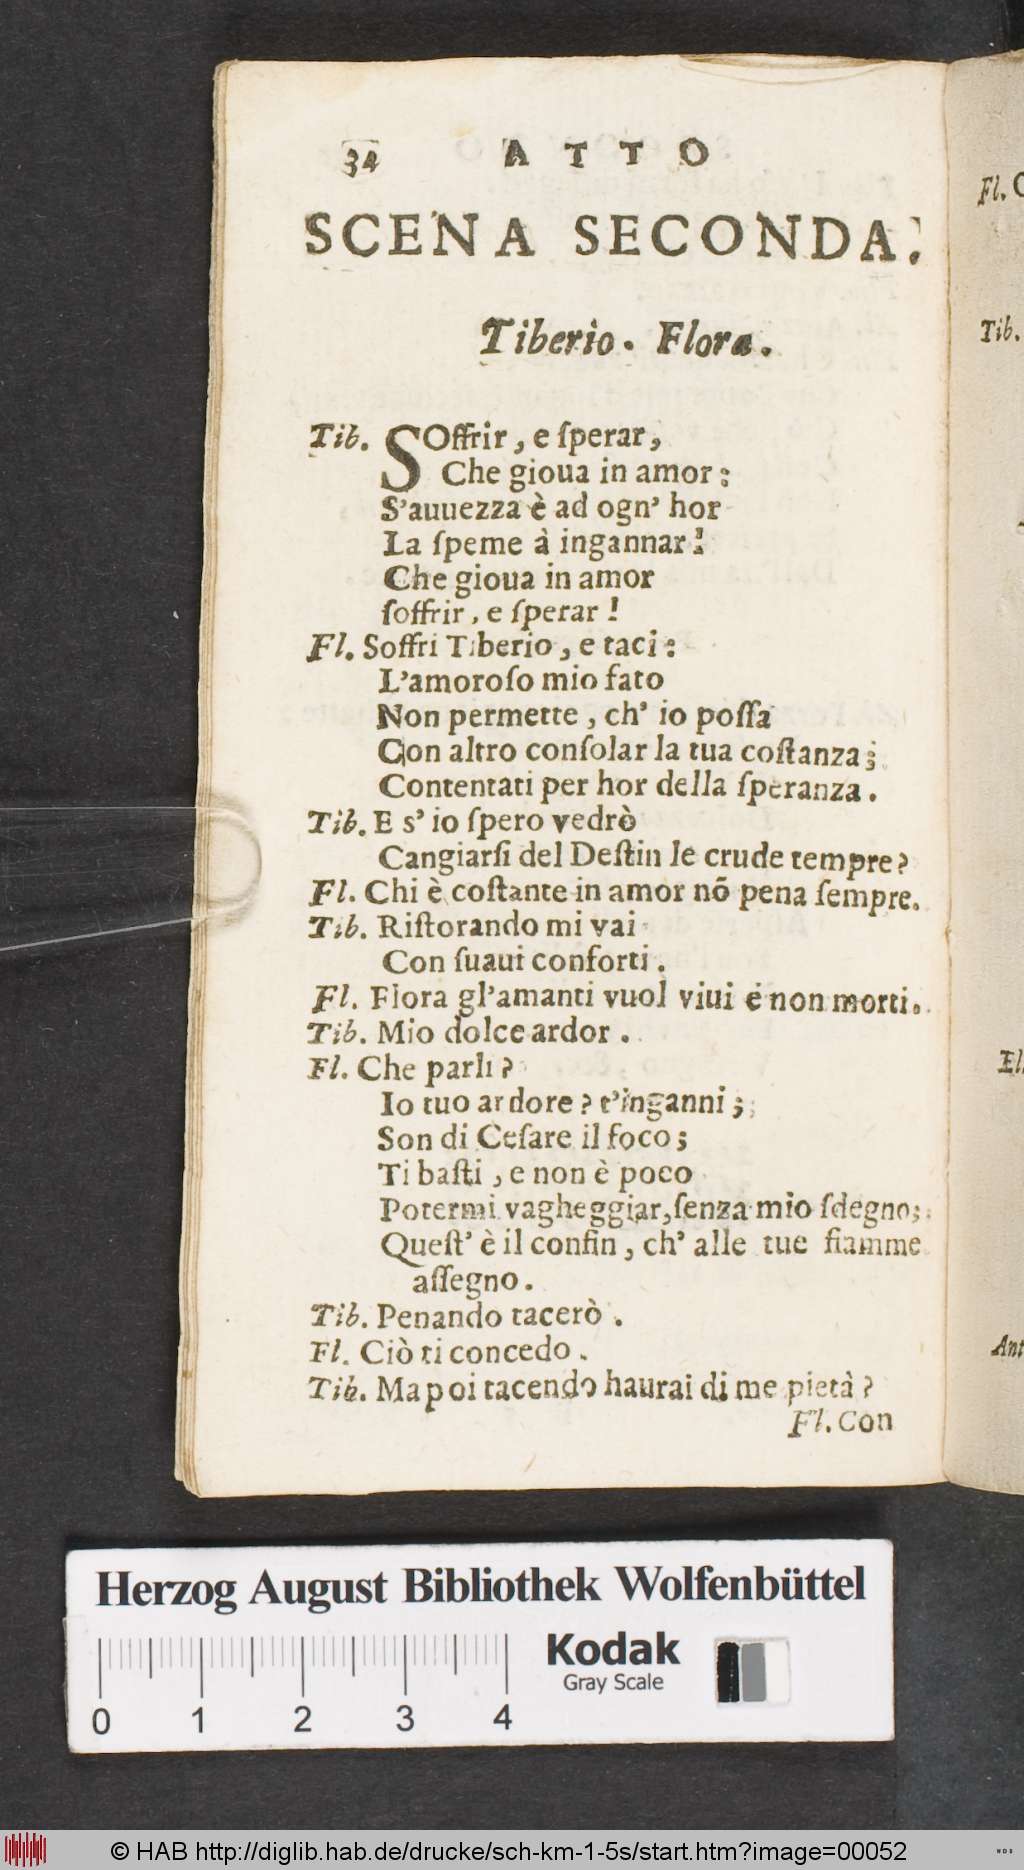 34 ATTO
SCENA SECONDA.
Tiberio. Flora.
Tib. SOffrir, e ſperar,
Che gioua in amor:
S'auuezza è ad ogn' hor
La ſpeme à ingannar!
Che gioua in amor
ſoffrir, e ſperar!
Fl. Soffri Tiberio, e taci:
L'amoroſo mio fato
Non permette, ch' io poſſa
Con altro conſolar la tua coſtanza;
Contentati per hor della ſperanza.
Tib. E s' io ſpero vedrò
Cangiarſi del Deſtin le crude tempre?
Fl. Chi è coſtante in amor nō pena ſempre.
Tib. Riſtorando mi vai
Con ſuaui conforti.
Fl. Flora gl'amanti vuol viui e non morti.
Tib. Mio dolce ardor.
Fl. Che parli?
Io tuo ardore? t'inganni;
Son di Ceſare il foco;
Ti baſti, e non è poco
Potermi vagheggiar, ſenza mio ſdegno;
Queſt' è il confin, ch' alle tue fiamme
aſſegno.
Tib. Penando tacerò.
Fl. Ciò ti concedo.
Tib. Ma poi tacendo haurai di me pietà?
Fl. Con
Fl.
Tib.
El.
Ant
Herzog August Bibliothek Wolfenbüttel
Kodak
Gray Scale
0 1 2 3 4
© HAB http://diglib.hab.de/drucke/sch-km-1-5s/start.htm?image=00052